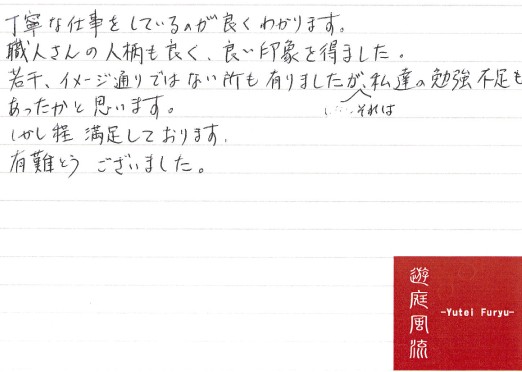 丁寧な仕事をしているのが良くわかります。
職人さんの人柄も良く、良い印象を得ました。
若干、イメージ通りではない所も有りましたが、それは私達の勉強不足も
あったかと思います。
しかし程満足しております。
有難とうございました。
遊庭風流
-Yutei Furyu-